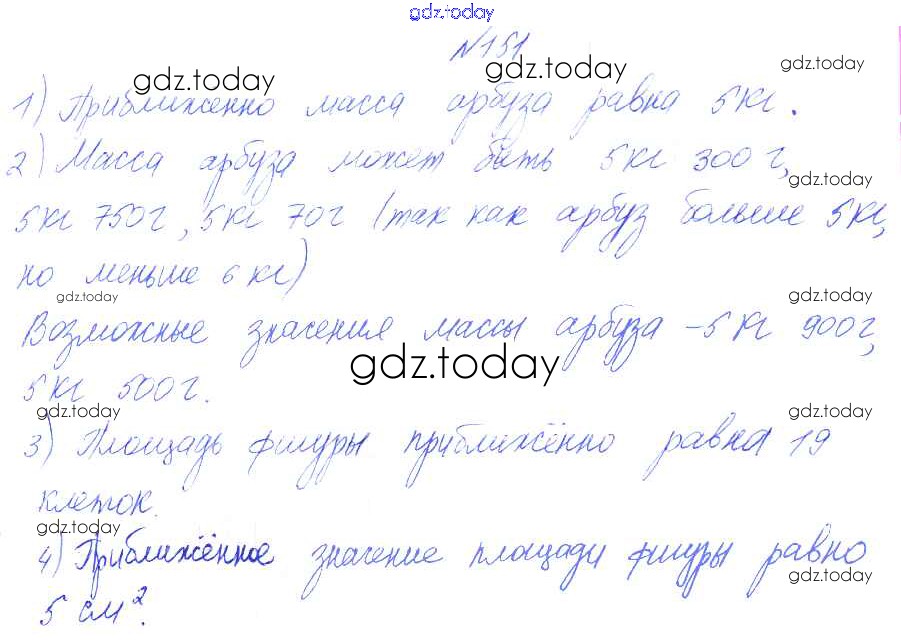 gdz.today
№151
gdz.today gdz.today gdz.today
1) Приближенно масса арбуза равна 5кг.
2) Масса арбуза может быть 5кг 300г,
gdz.today
5кг 750г, 5кг 70г (так как арбуз больше 5кг,
но меньше 6кг)
gdz.today gdz.today
Возможные значения массы арбуза – 5кг 900г,
gdz.today
5кг 500г.
gdz.today gdz.today
3) Площадь фигуры приближённо равна 19
клеток.
gdz.today gdz.today
4) Приближённое значение площади фигуры равно
gdz.today
5 см².